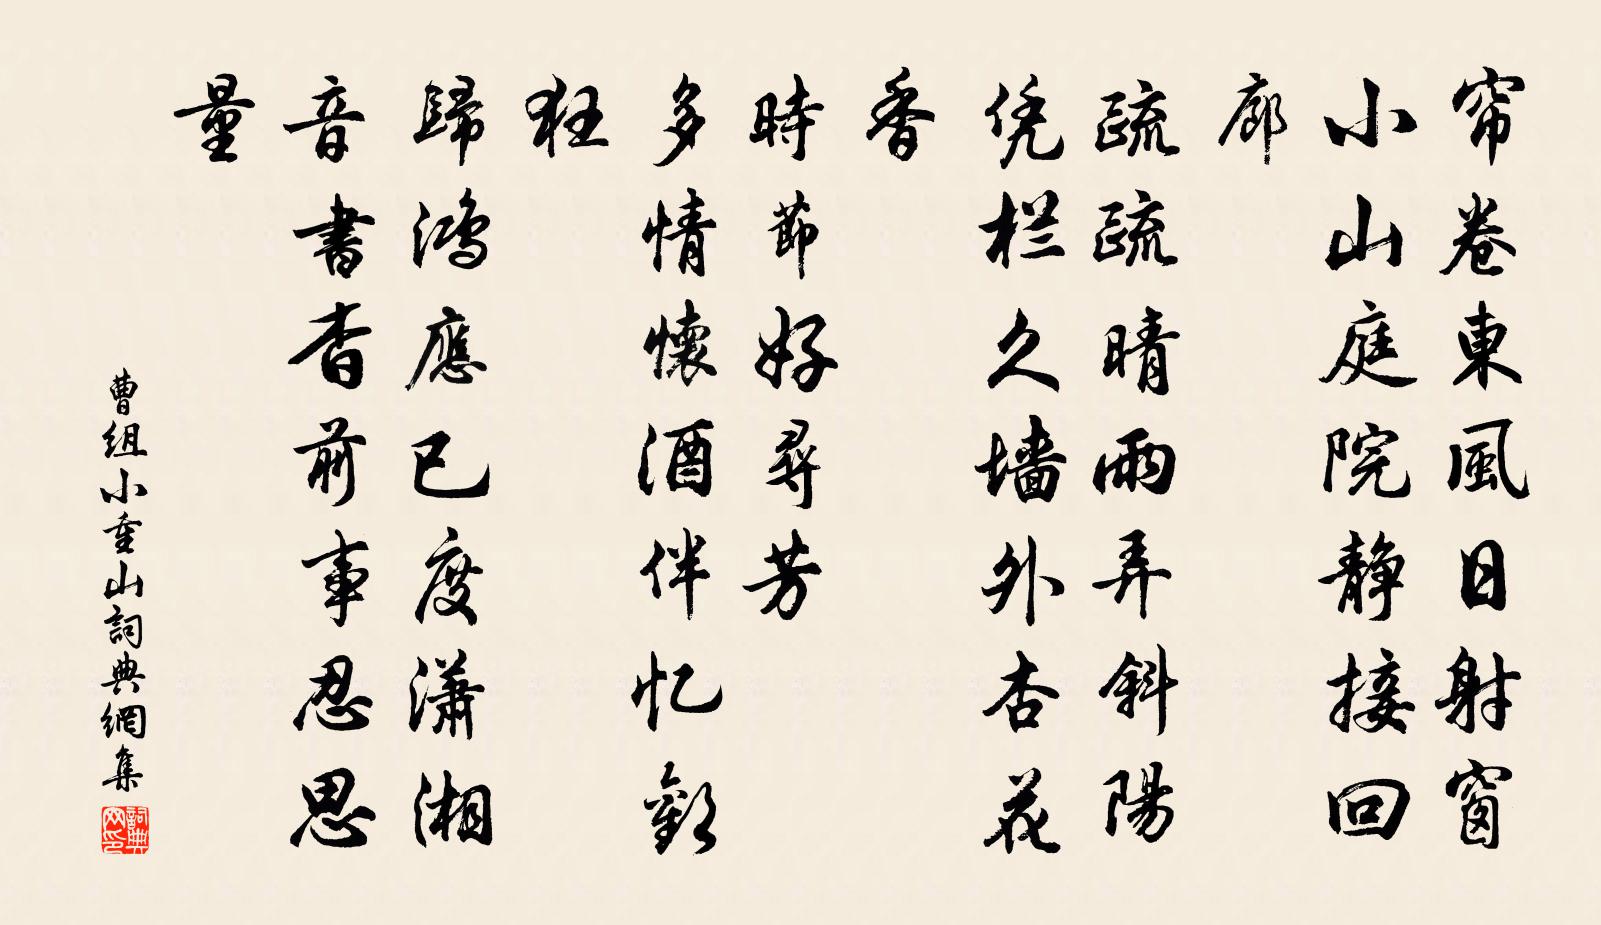 帘卷東風日射窗
小山庭院静接回
廊
疏疏晴雨弄斜陽
凭栏久墙外杏花
香
時節好尋芳
多情懷酒伴忆歡
狂
歸鴻應已度瀟湘
音書杳前事忍思
量
曹組小重山詞典網集
詞典网印